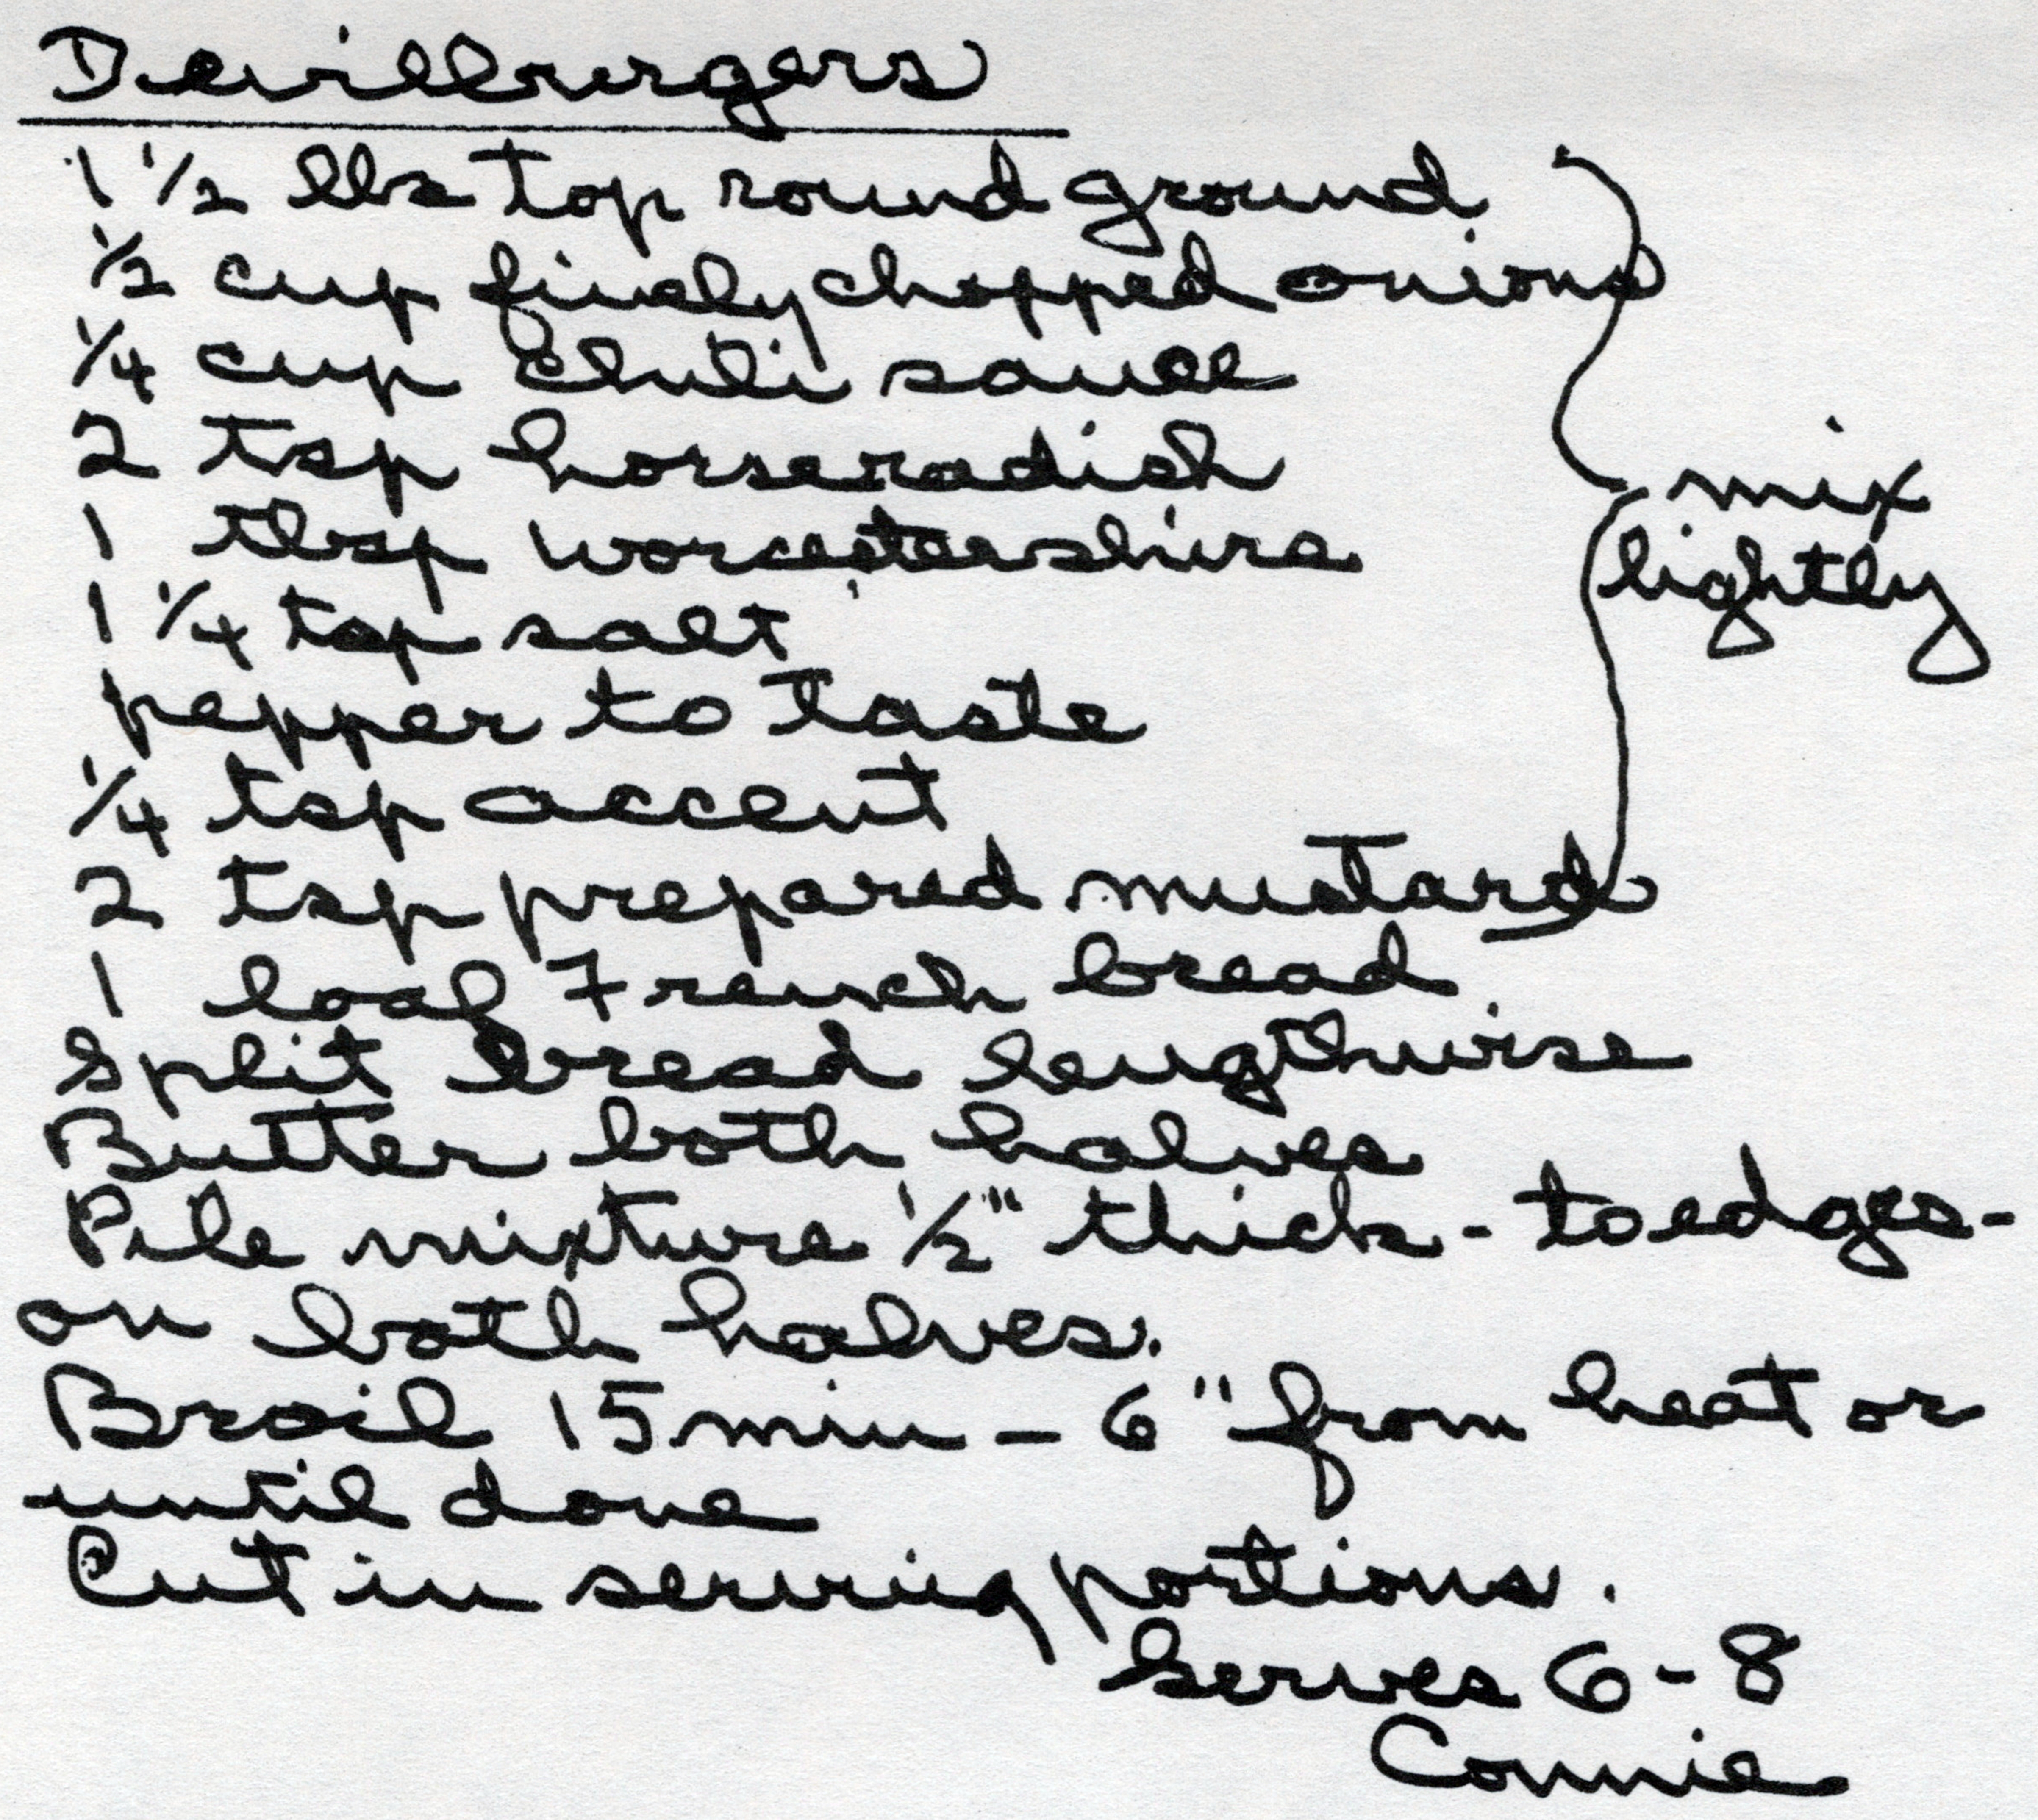 Devilburgers
1 1/2 lbs top round ground
1/2 cup finely chopped onions
1/4 cup chili sauce
2 tsp horseradish
1 tbsp worcestershire
1 1/4 tsp salt
pepper to taste
1/4 tsp accent
2 tsp prepared mustard
mix
lightly
1 loaf French bread
Split bread lengthwise
Butter both halves
Pile mixture 1/2" thick - to edges -
on both halves.
Broil 15 min - 6" from heat or
until done
Cut in serving portions.
Serves 6 - 8
Connie